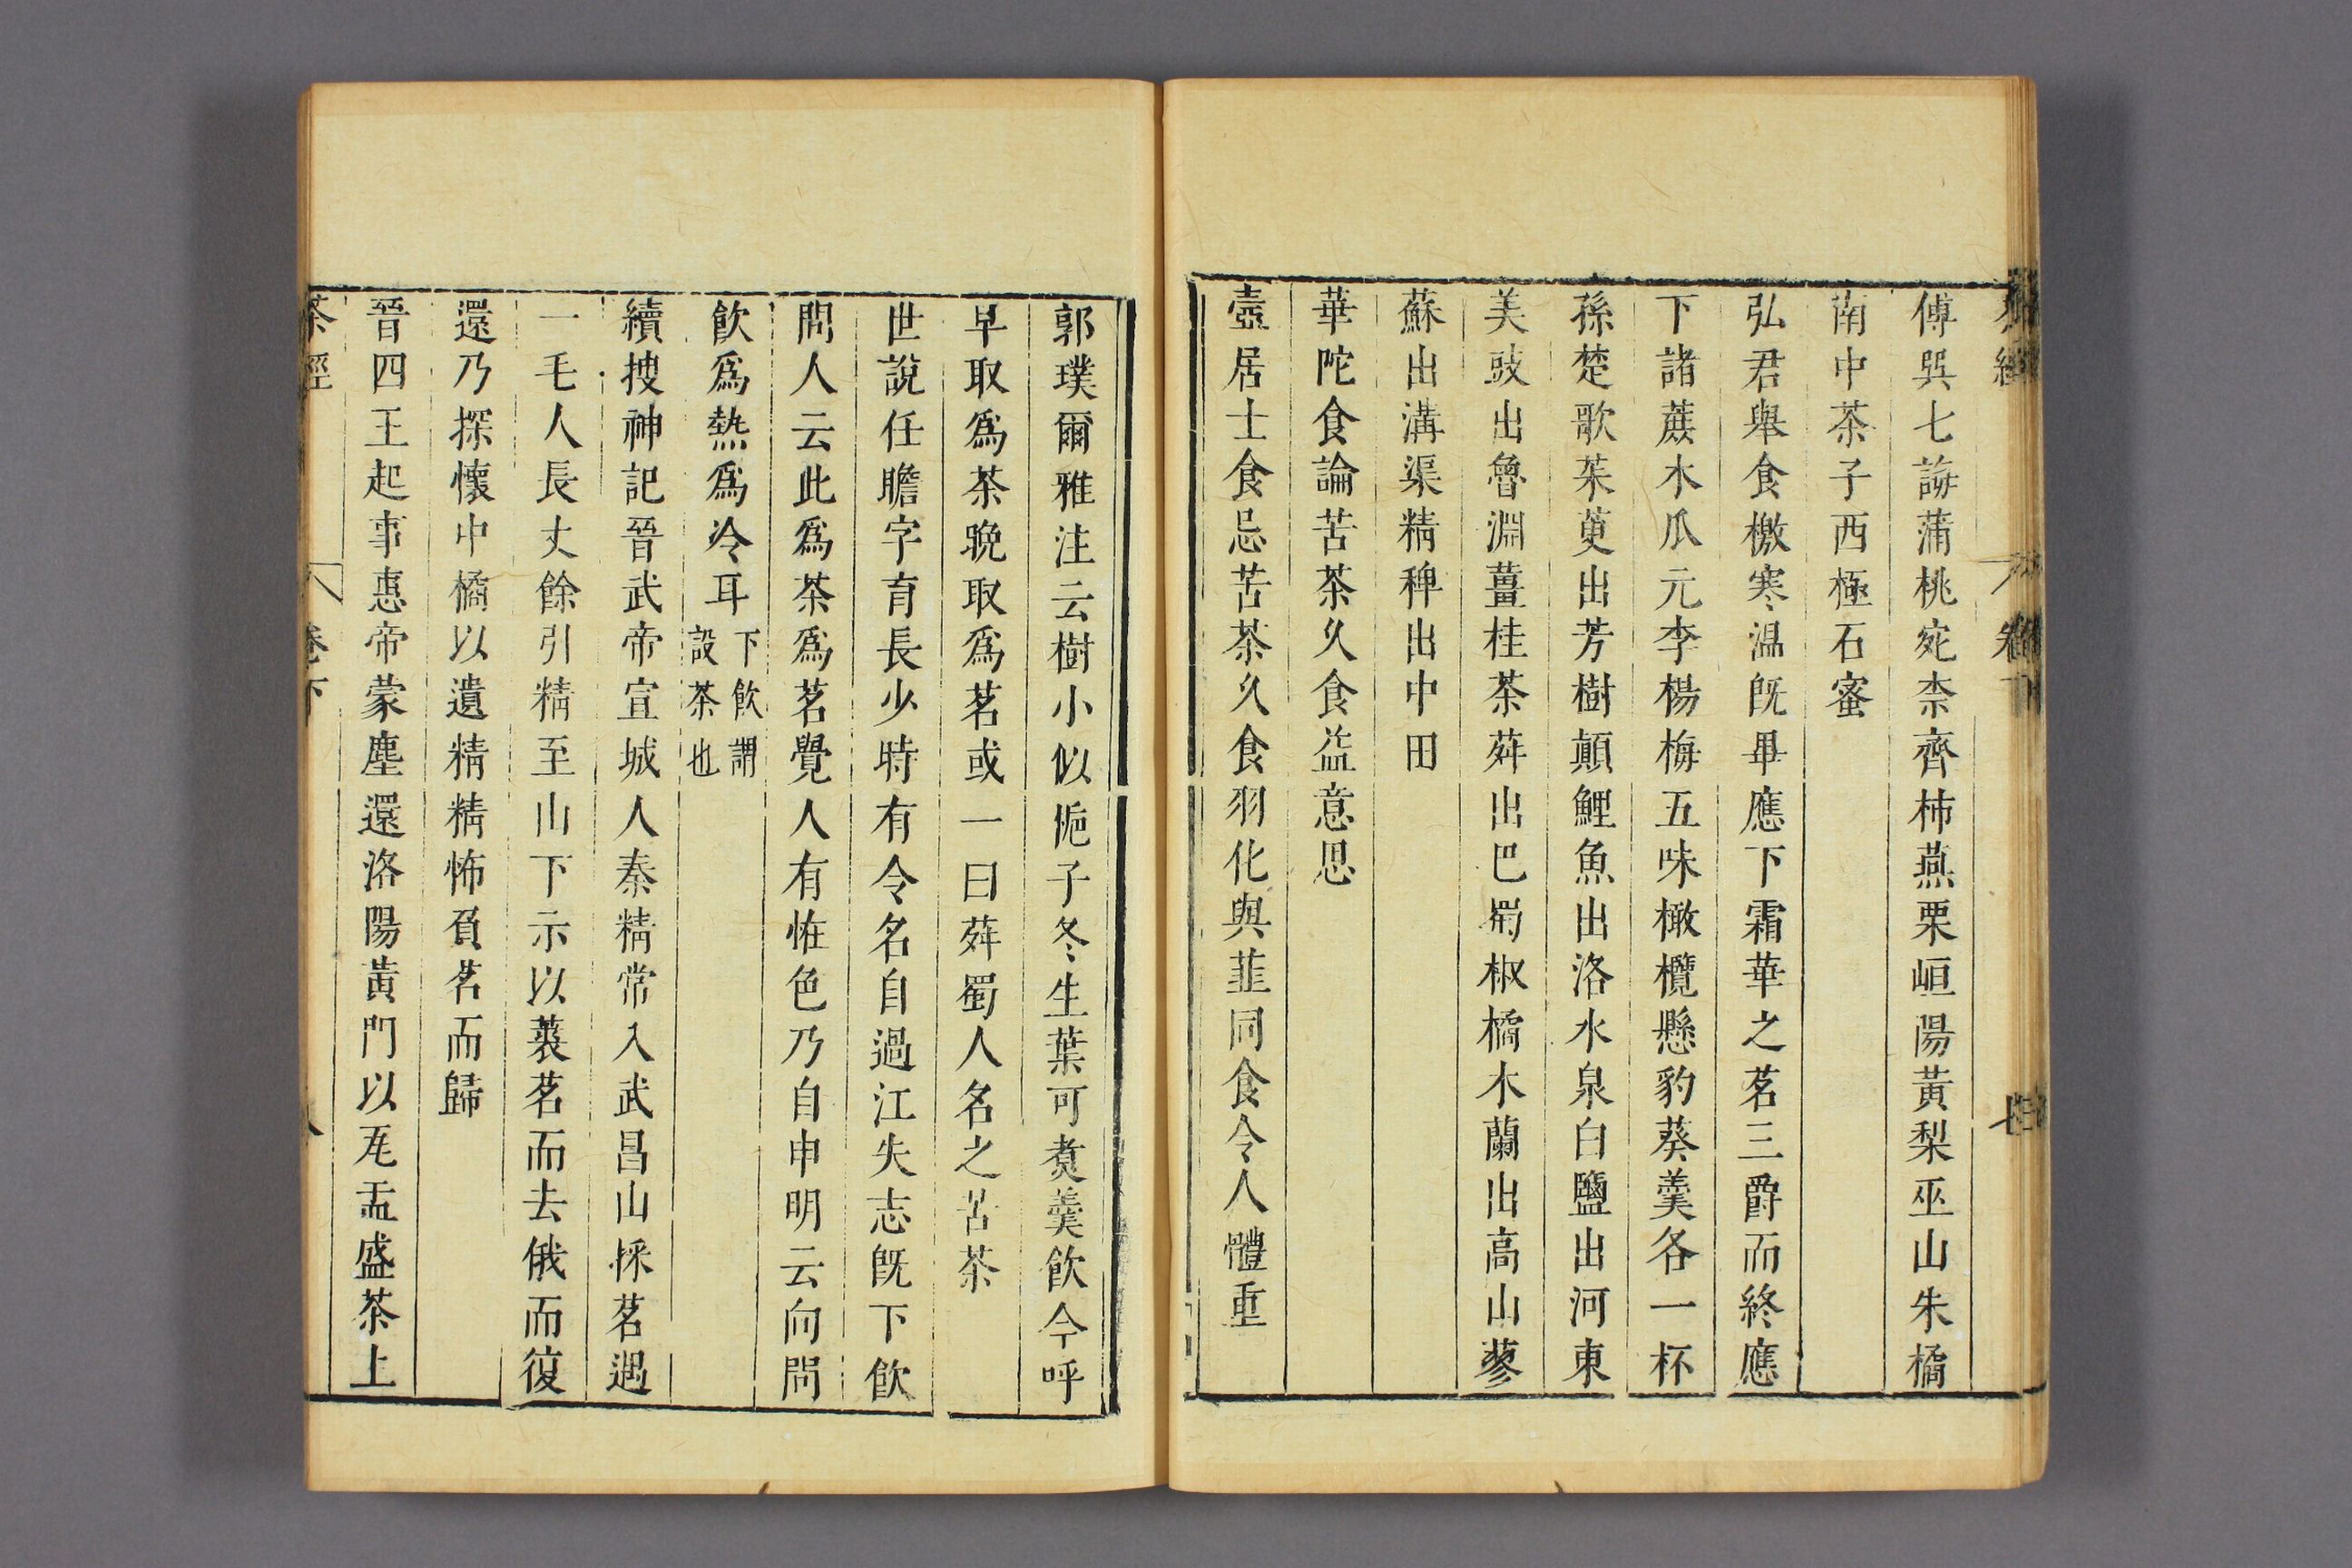 傅巽七誨蒲桃宛柰齊柿燕栗峘陽黃梨巫山朱橘
南中茶子西極石蜜
弘君舉食檄寒溫旣畢應下霜華之茗三爵而終應
下諸蔗木瓜元李楊梅五味橄欖懸豹葵羹各一杯
孫楚歌茱萸出芳樹顚鯉魚出洛水泉白鹽出河東
美豉出魯淵薑桂茶荈出巴蜀椒橘木蘭出高山蓼
蘇出溝渠精稗出中田
華陀食論苦茶久食益意思
壺居士食忌苦茶久食羽化與韮同食令人體重
郭璞爾雅注云樹小似梔子冬生葉可煑羹飲今呼
早取爲茶晚取爲茗或一曰荈蜀人名之苦茶
世說任瞻字育長少時有令名自過江失志旣下飲
問人云此爲茶爲茗覺人有恠色乃自申明云向問
飲爲熱爲冷耳下飲謂設茶也
續搜神記晉武帝宣城人秦精常入武昌山採茗遇
一毛人長丈餘引精至山下示以藂茗而去俄而復
還乃探懷中橘以遺精精怖負茗而歸
晉四王起事惠帝蒙塵還洛陽黃門以瓦盂盛茶上
茶經 卷下 八